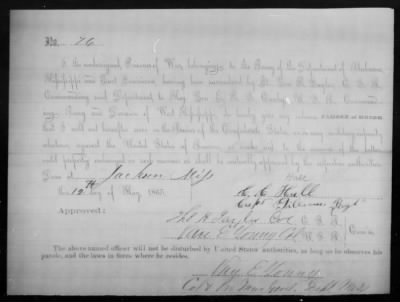 No. 76
I the undersigned, Prisoner of War, belonging to the Army of the Department of Alabama,
Mississippi and East Louisiana, having been surrendered by Lieut. Gen. R. Taylor, C. S. A.,
Commanding said Department, to Maj. Gen. E. R. S. Canby, U. S. A., Commanding
Army and Division of West Mississippi, do hereby give my solemn PAROLE OF HONOR
that I will not hereafter serve in the Armies of the Confederate States, or in any military capacity
whatever, against the United States of America, or render aid to the enemies of the latter,
until properly exchanged in such manner as shall be mutually approved by the respective authorities.
Done at Jackson Miss
this 12th day of May 1865.
Hull
Capt
Approved:
Col C. S. A.
E. Young Col U. S. A.
Com'rs.
The above named officer will not be disturbed by United States authorities, as long as he observes his
parole, and the laws in force where he resides.
E. Young